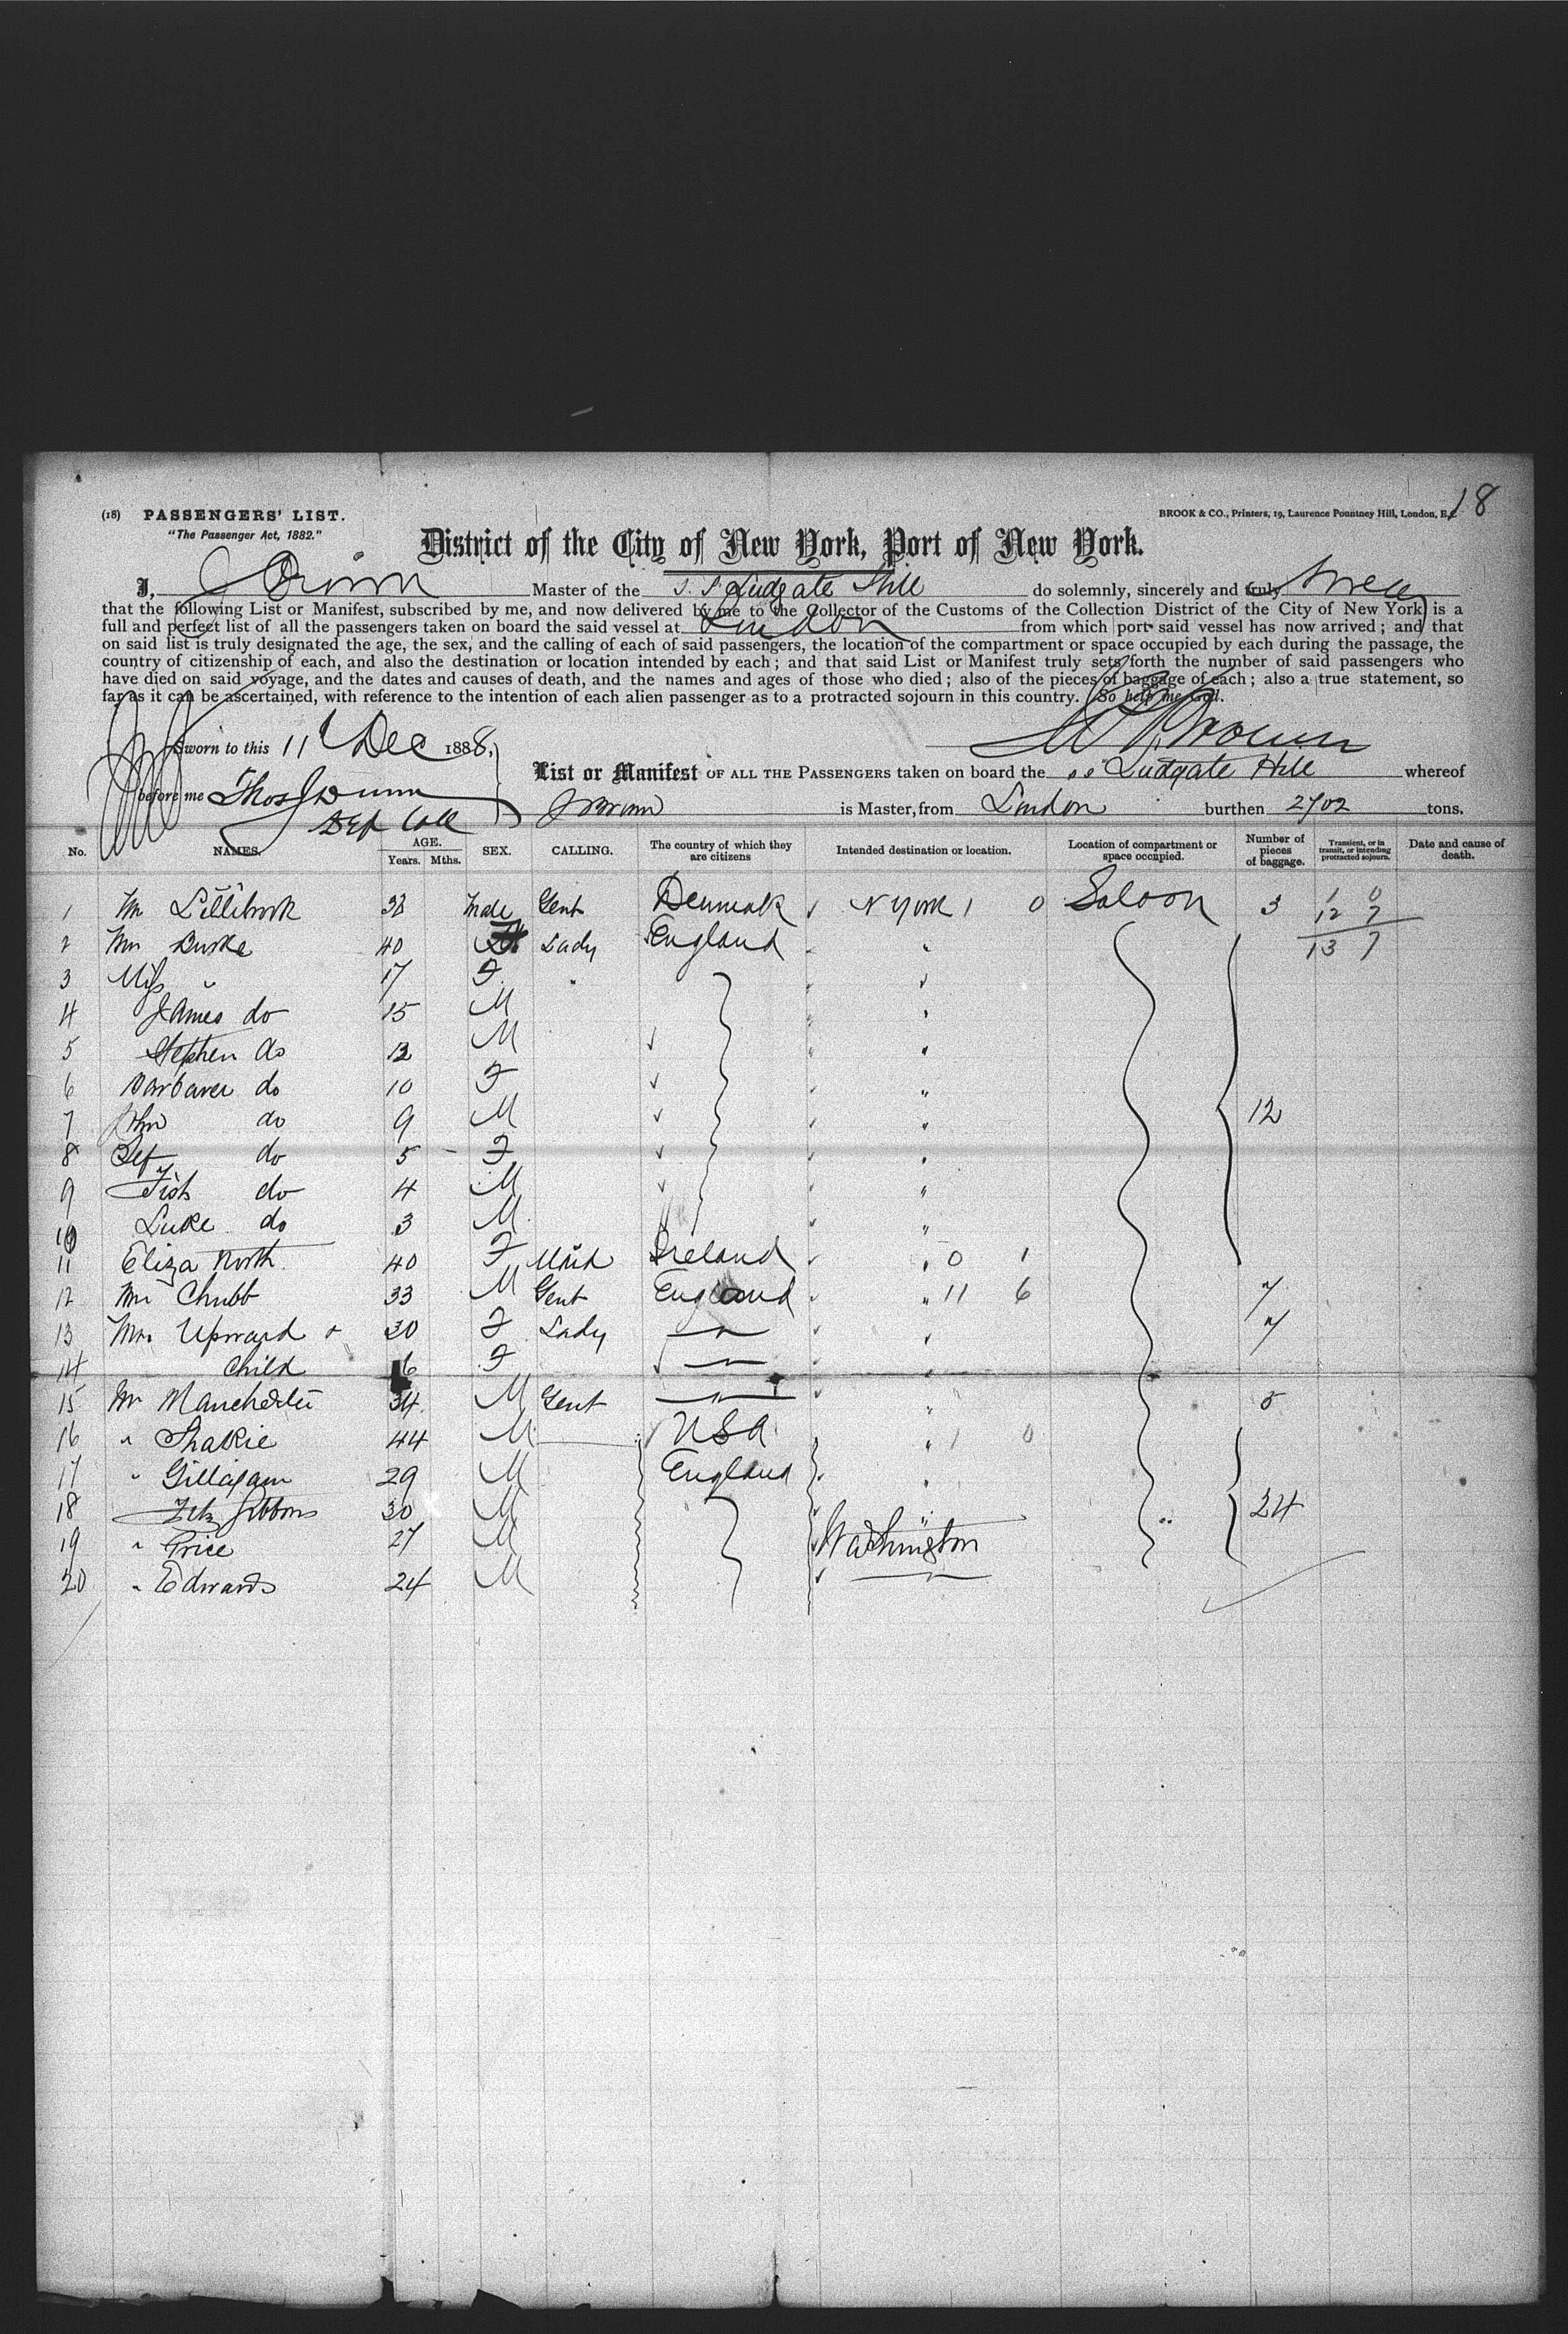 18
(18) PASSENGERS' LIST. BROOK & CO., Printers, 19, Laurence Pountney Hill, London, E.C.
"The Passenger Act, 1882."
District of the City of New York, Port of New York.
I, Master of the S.S. Ludgate Hill do solemnly, sincerely and truly swear
that the following List or Manifest, subscribed by me, and now delivered by me to the Collector of the Customs of the Collection District of the City of New York, is a
full and perfect list of all the passengers taken on board the said vessel at London from which port said vessel has now arrived; and that
on said list is truly designated the age, the sex, and the calling of each of said passengers, the location of the compartment or space occupied by each during the passage, the
country of citizenship of each, and also the destination or location intended by each; and that said List or Manifest truly sets forth the number of said passengers who
have died on said voyage, and the dates and causes of death, and the names and ages of those who died; also of the pieces of baggage of each; also a true statement, so
far as it can be ascertained, with reference to the intention of each alien passenger as to a protracted sojourn in this country. So help me God.
Sworn to this 11 Dec 1888, Brown
List or Manifest OF ALL THE PASSENGERS taken on board the ss Ludgate Hill whereof
before me Thos J Dunn Brown is Master, from London burthen 2702 tons.
Dep Coll
No. NAMES. AGE. Years. Mths. SEX. CALLING. The country of which they are citizens Intended destination or location. Location of compartment or space occupied. Number of pieces of baggage. Transient, or in transit, or intending protracted sojourn. Date and cause of death.
1 Mr Lillibrook 38 Male Gent Denmark N York 1 0 Saloon 3 1 0
12 7
2 Mrs Burke 40 Lady England " 13 7
3 Miss " 17 F " "
4 James do 15 M "
5 Stephen do 12 M "
6 Barbara do 10 F "
7 John do 9 M " 12
8 do 5 F "
9 do 4 M "
10 Luke do 3 M "
11 Eliza North 40 F Maid Ireland " 0 1
12 Mr Chubb 33 M Gent England " 11 6 7
13 Mrs Upward + 30 F Lady " " 7
14 Child 6 F " "
15 Mr Manchester 34 M Gent " " 5
16 " Shakie 44 M USA " 1 0
17 " Gilligam 29 M England "
18 Fitz Gibbons 30 M " 24
19 " Price 27 M Washington
20 " Edwards 24 M "